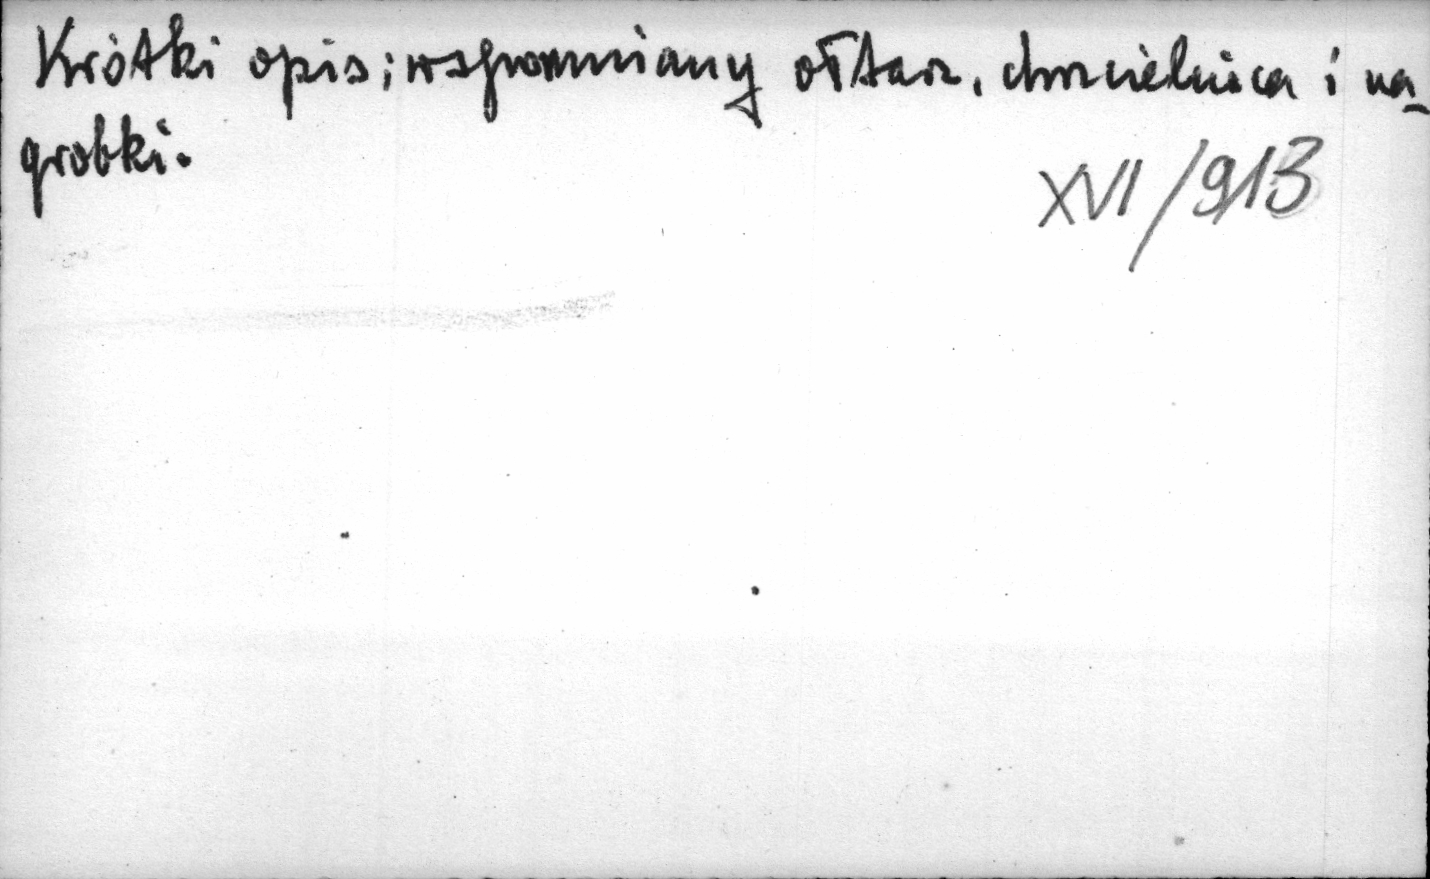 Krótki opis; wspomniany ołtarz, chrzcielnica i na_
grobki.
XVI/913